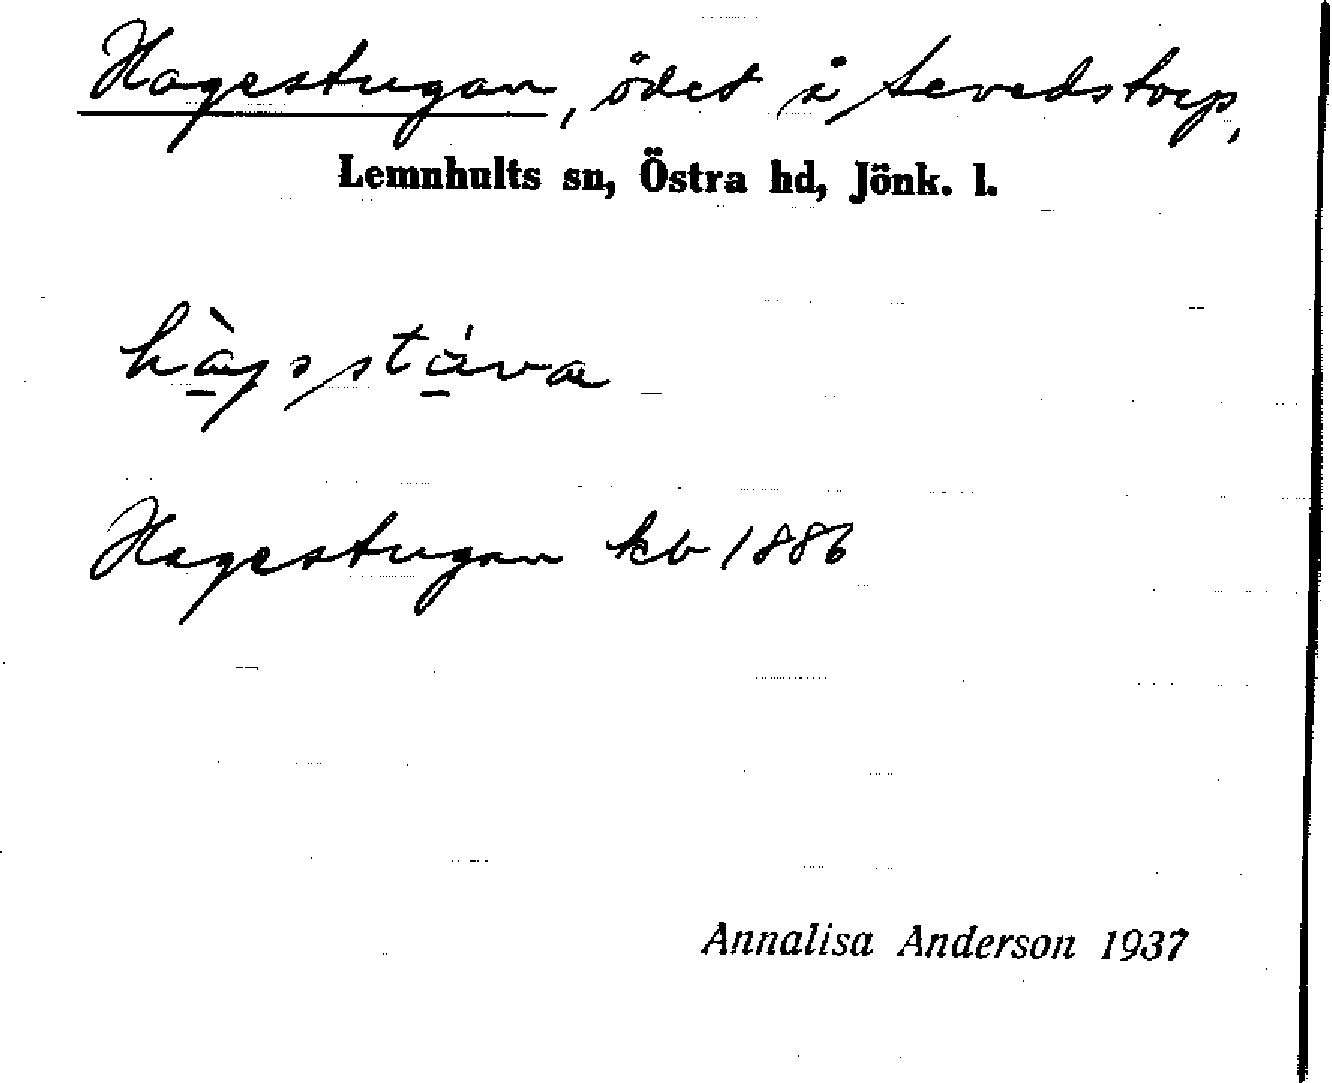 Hagestugan, ödet å Sevedstorp,
Lemnhults sn, Östra hd, Jönk. l.
hàgsstáva
Hagestugan kb 1886
Annalisa Anderson 1937